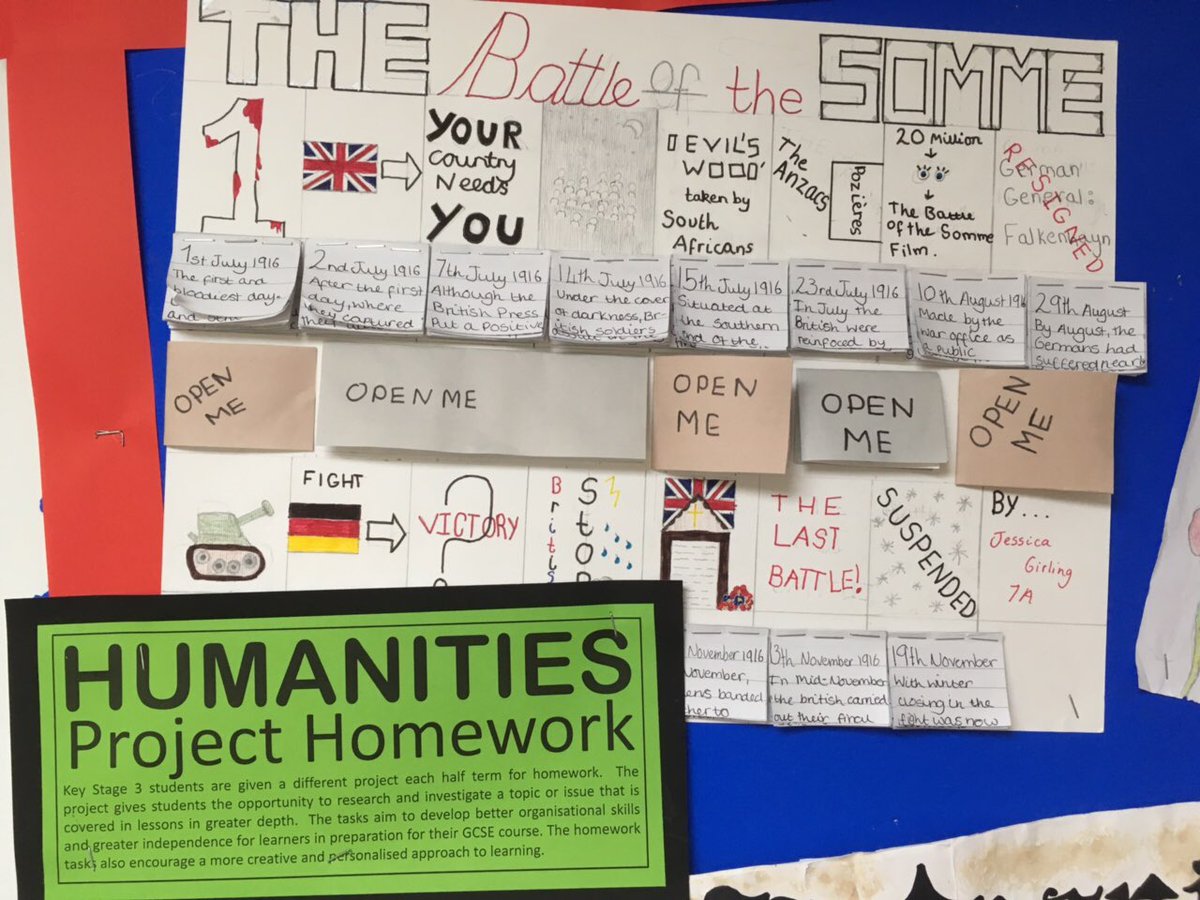 THE Battle of the SOMME
1
YOUR
Country
Needs
YOU
DEVIL'S
WOOD'
taken by
South
Africans
The Anzacs
Pozières
20 Million
The Battle
of the Somme
Film.
German
General:
Falkenhayn
RESIGNED
1st July 1916
The first and
bloodiest day.
and
2nd July 1916
After the first
day, where
they captured
7th July 1916
Although the
British Press
Put a Positive
14th July 1916
Under the cover
of darkness, Br-
itish soldiers
15th July 1916
Situated at
the Southern
end of the
23rd July 1916
In July the
British were
reanfoced by
10th August 191
Made by the
war office as
a public
29th August
By August, the
Germans had
suffered near
OPEN
ME
OPEN ME
OPEN
ME
OPEN
ME
OPEN
ME
FIGHT
VICTORY
?
Britis
Stop
THE
LAST
BATTLE!
SUSPENDED
By...
Jessica
Girling
7A
November 1916
November,
banded
3th November 1916
In Mid-November
the british carried
out their
19th November
With winter
closing in the
fight was now
HUMANITIES
Project Homework
Key Stage 3 students are given a different project each half term for homework. The
project gives students the opportunity to research and investigate a topic or issue that is
covered in lessons in greater depth. The tasks aim to develop better organisational skills
and greater independence for learners in preparation for their GCSE course. The homework
tasks also encourage a more creative and personalised approach to learning.